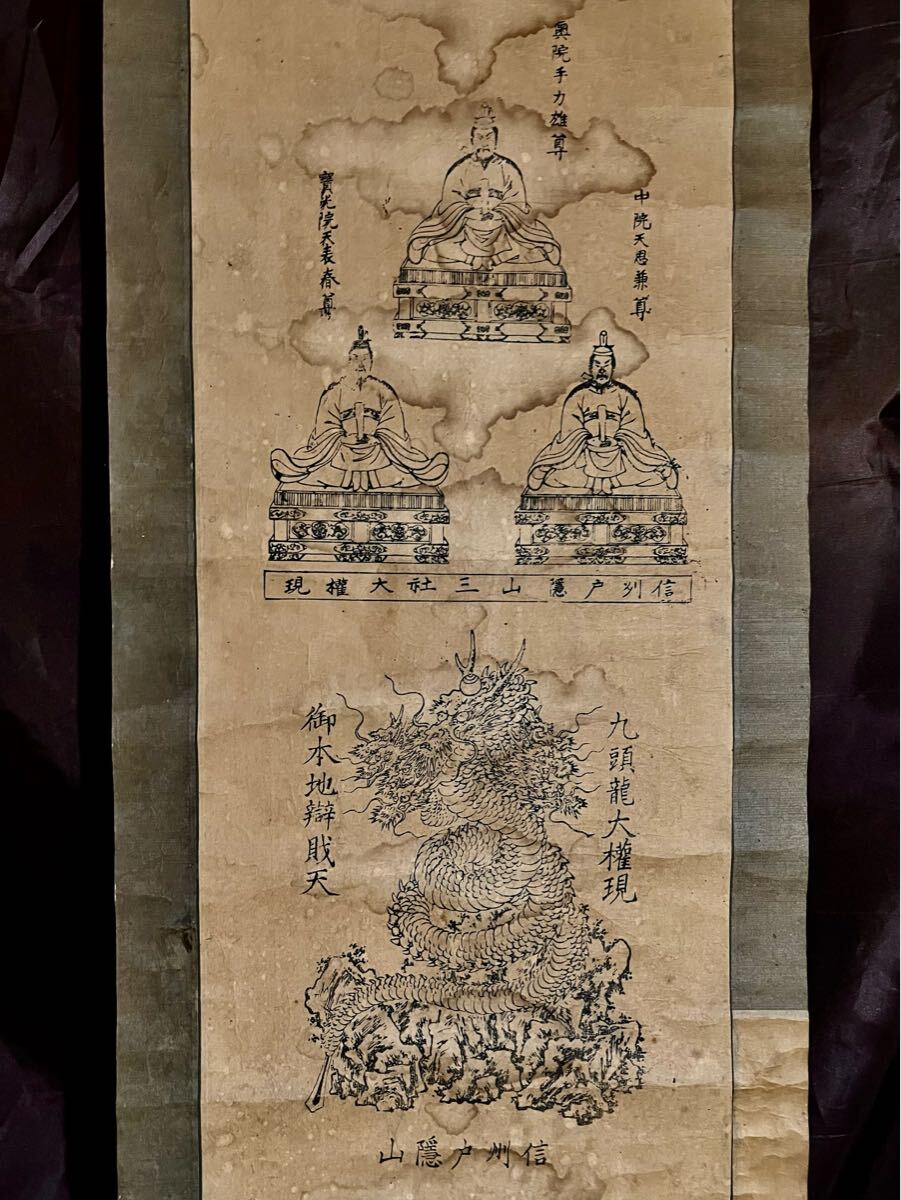 奥院手力雄尊
中院天思兼尊
寳光院天表春尊
信州戸隱山三社大權現
九頭龍大權現
御本地辯戝天
信州戸隱山